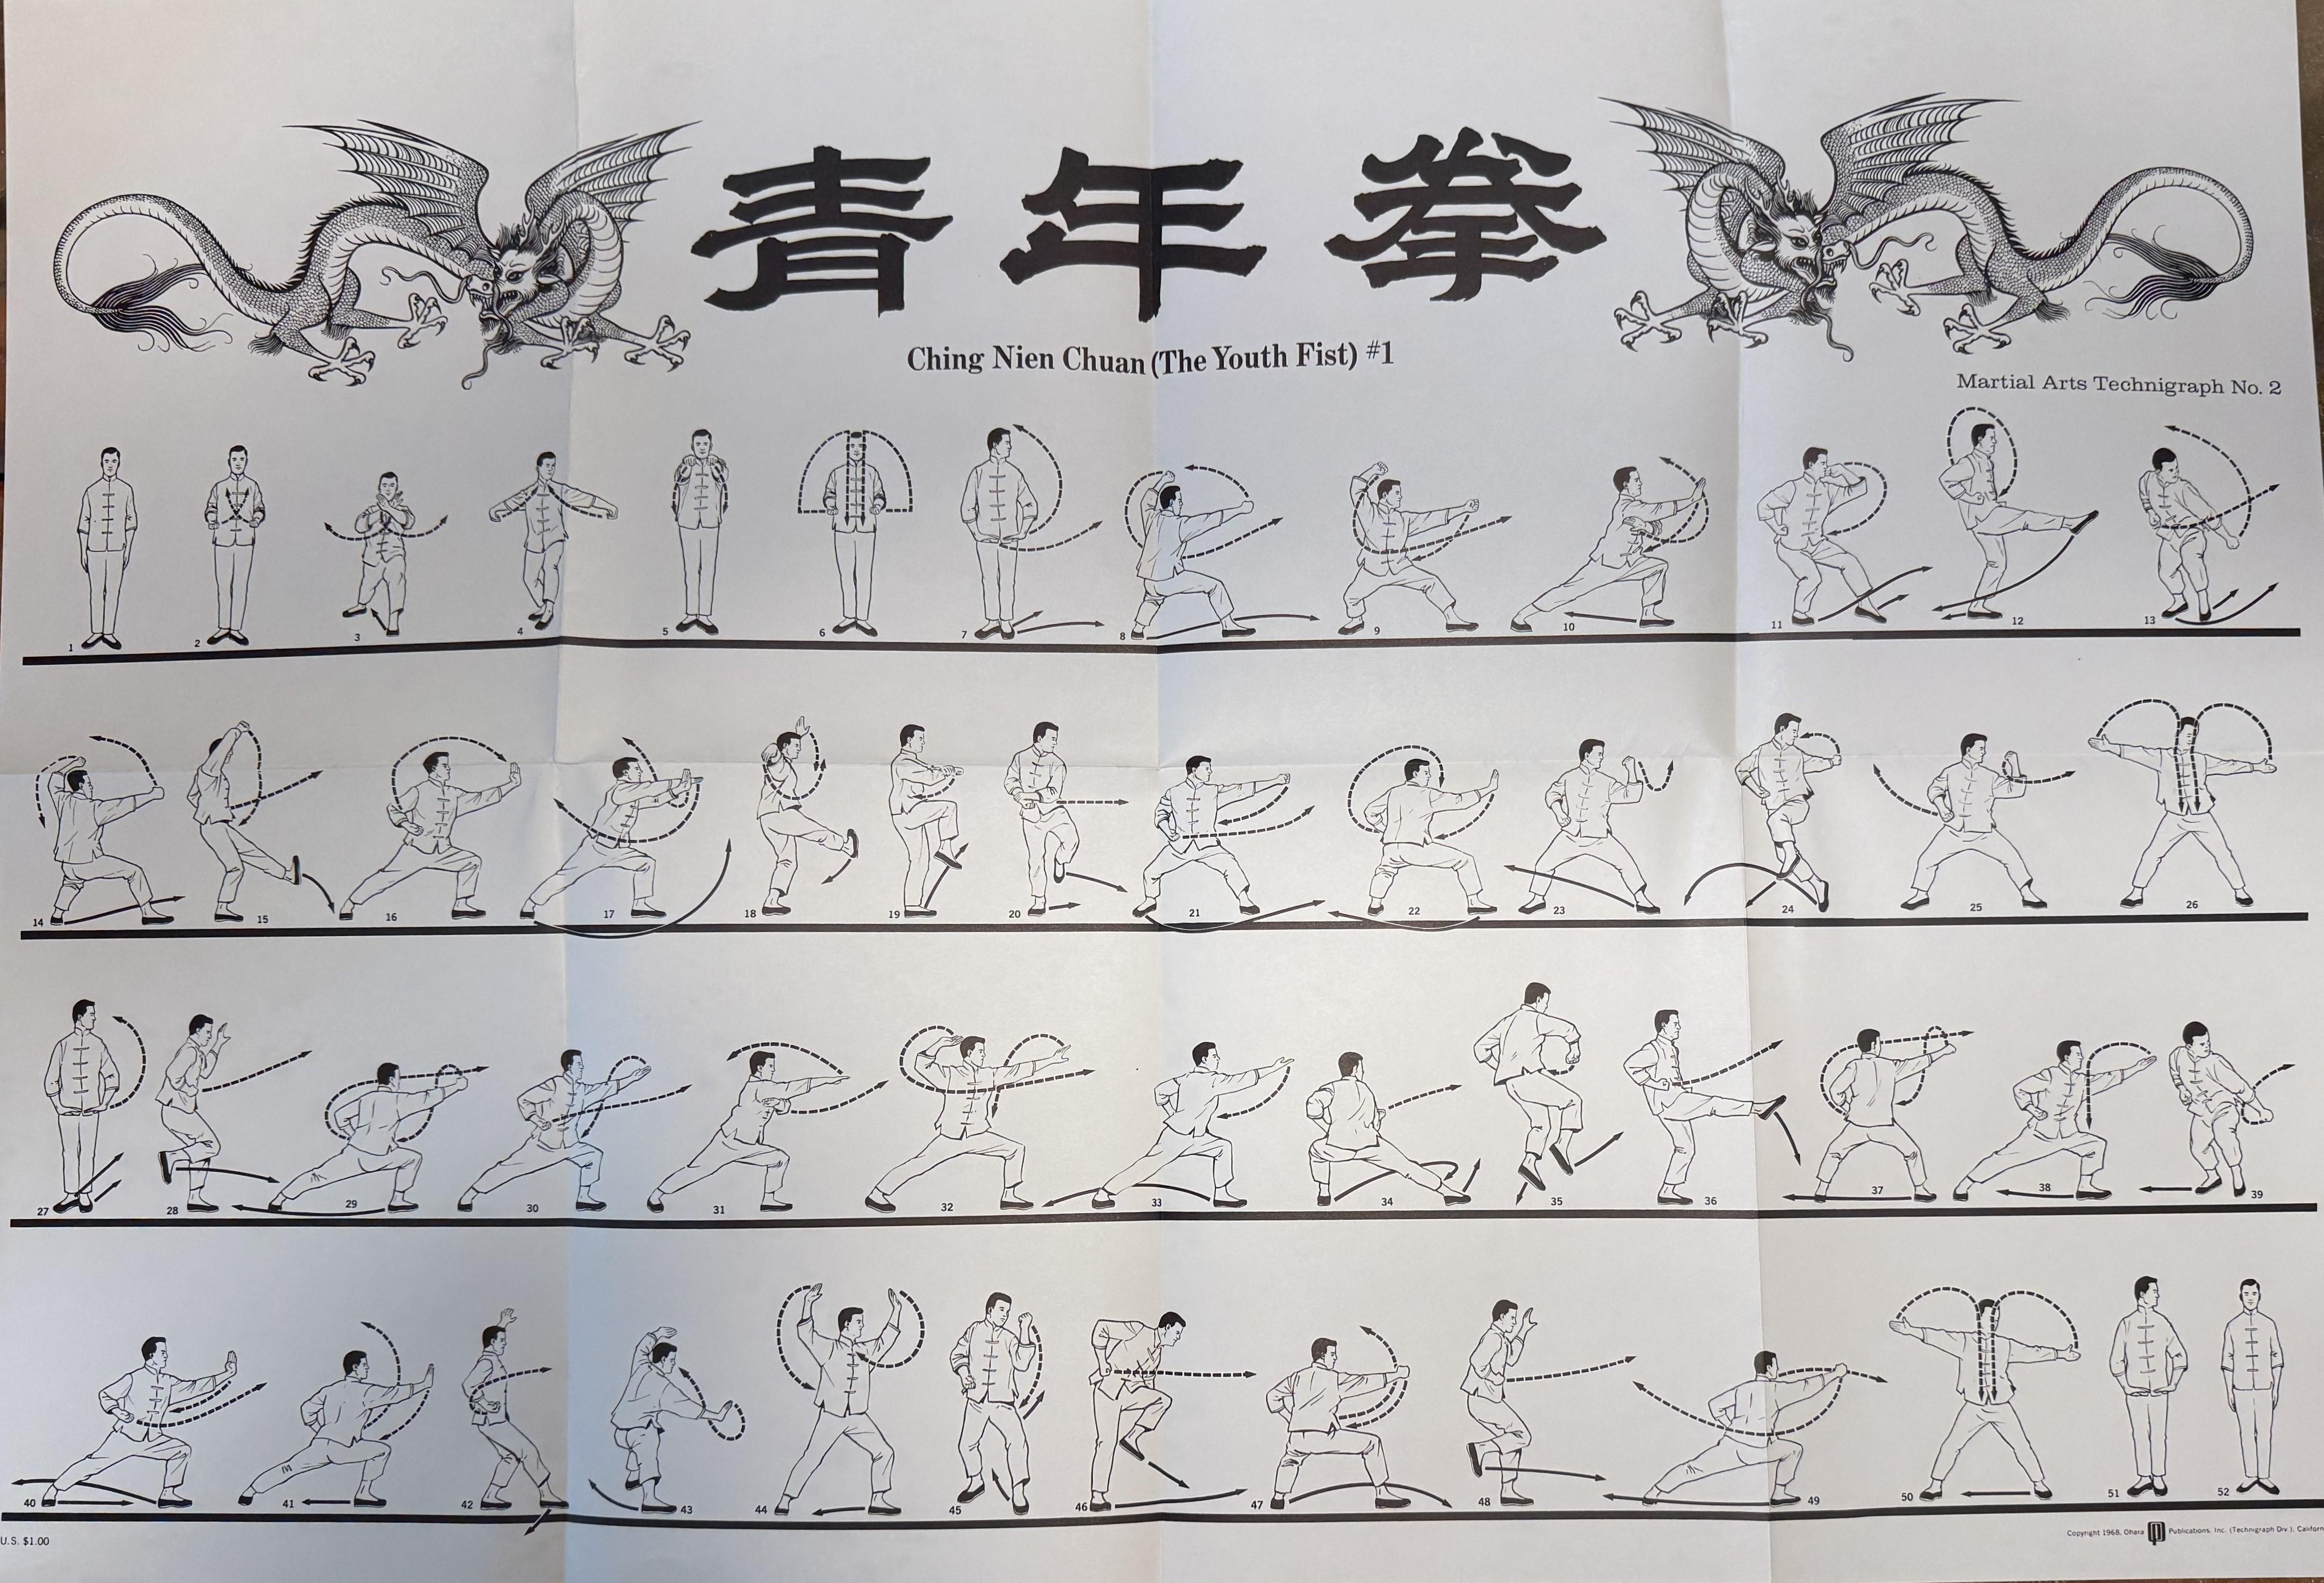 青年拳
Ching Nien Chuan (The Youth Fist) #1
Martial Arts Technigraph No. 2
1 2 3 4 5 6 7 8 9 10 11 12 13
14 15 16 17 18 19 20 21 22 23 24 25 26
27 28 29 30 31 32 33 34 35 36 37 38 39
40 41 42 43 44 45 46 47 48 49 50 51 52
U.S. $1.00
Copyright 1968, Ohara Publications, Inc. (Technigraph Div.), Californ